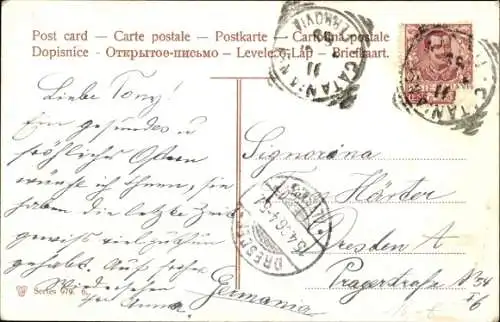 Post card – Carte postale – Postkarte – Cartolina postale
Dopisnice - Открытое-письмо - Levelező-Lap - Briefkaart.
CATANIA
FERROVIA
Liebe Tony!
Ein gesundes u
fröhliches Ostern
wünsche ich Ihnen, sie
haben die letzte Zeit
gewiss viel zu thun
gehabt. Auf frohes
Wiedersehen
Ihre Anna.
Signorina
Tony Härter
Dresden A
Pragerstraße No 54
II 6
Germania
DRESDEN
15.4.06. 4-5
ALTST.
Series 679. 6.